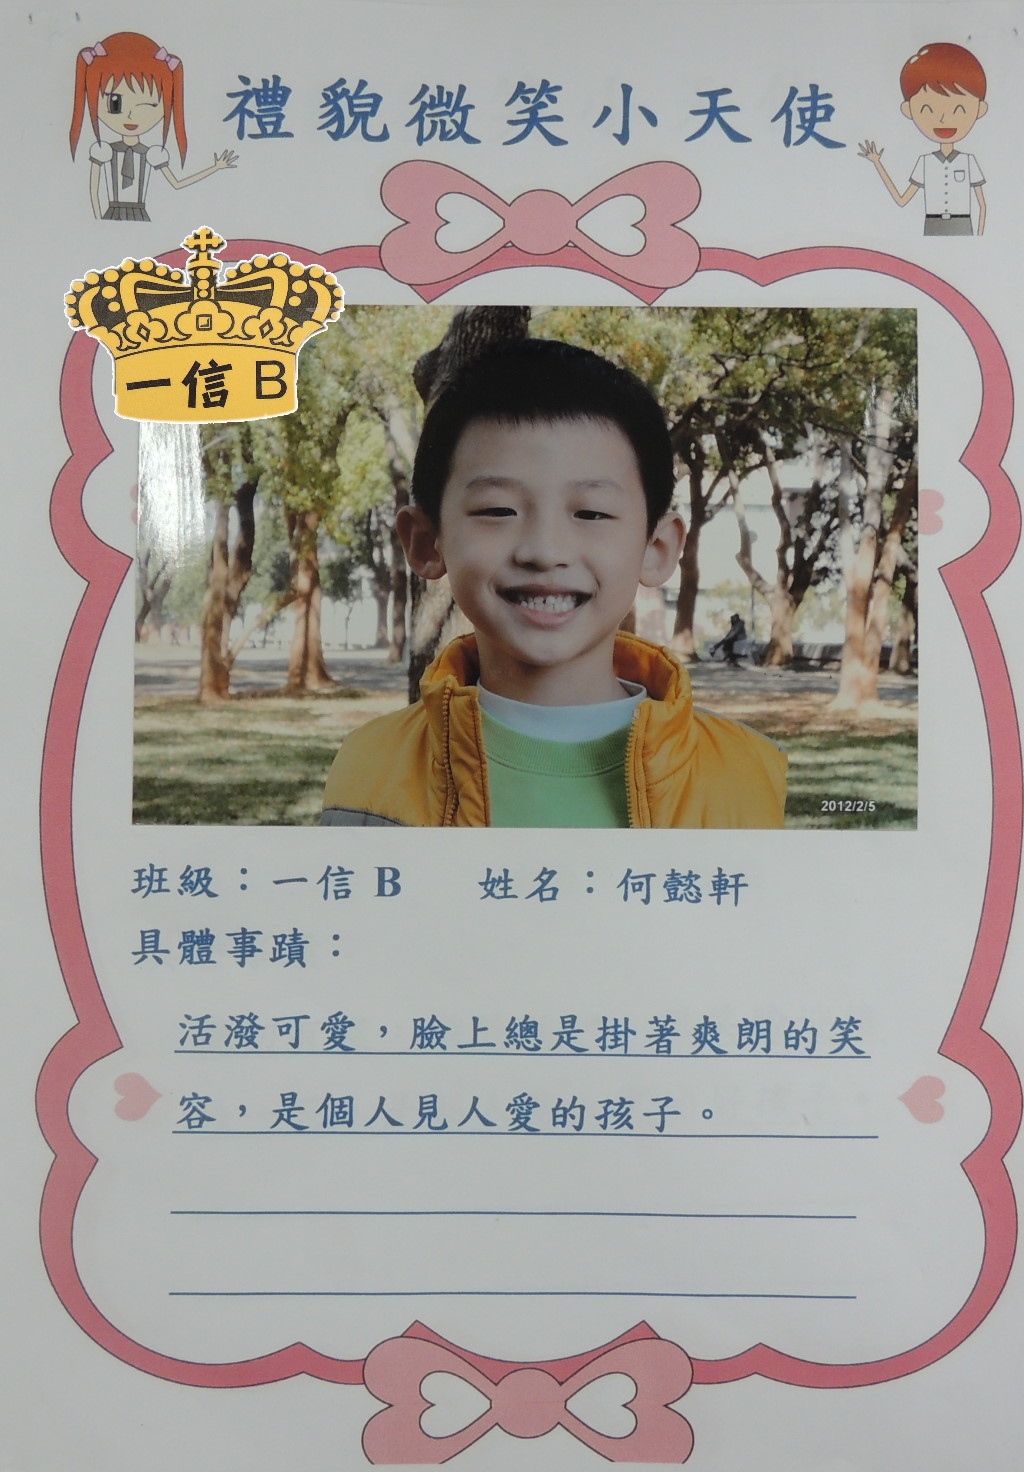 禮貌微笑小天使
一信 B
2012/2/5
班級：一信 B 姓名：何懿軒
具體事蹟：
活潑可愛，臉上總是掛著爽朗的笑
容，是個人見人愛的孩子。